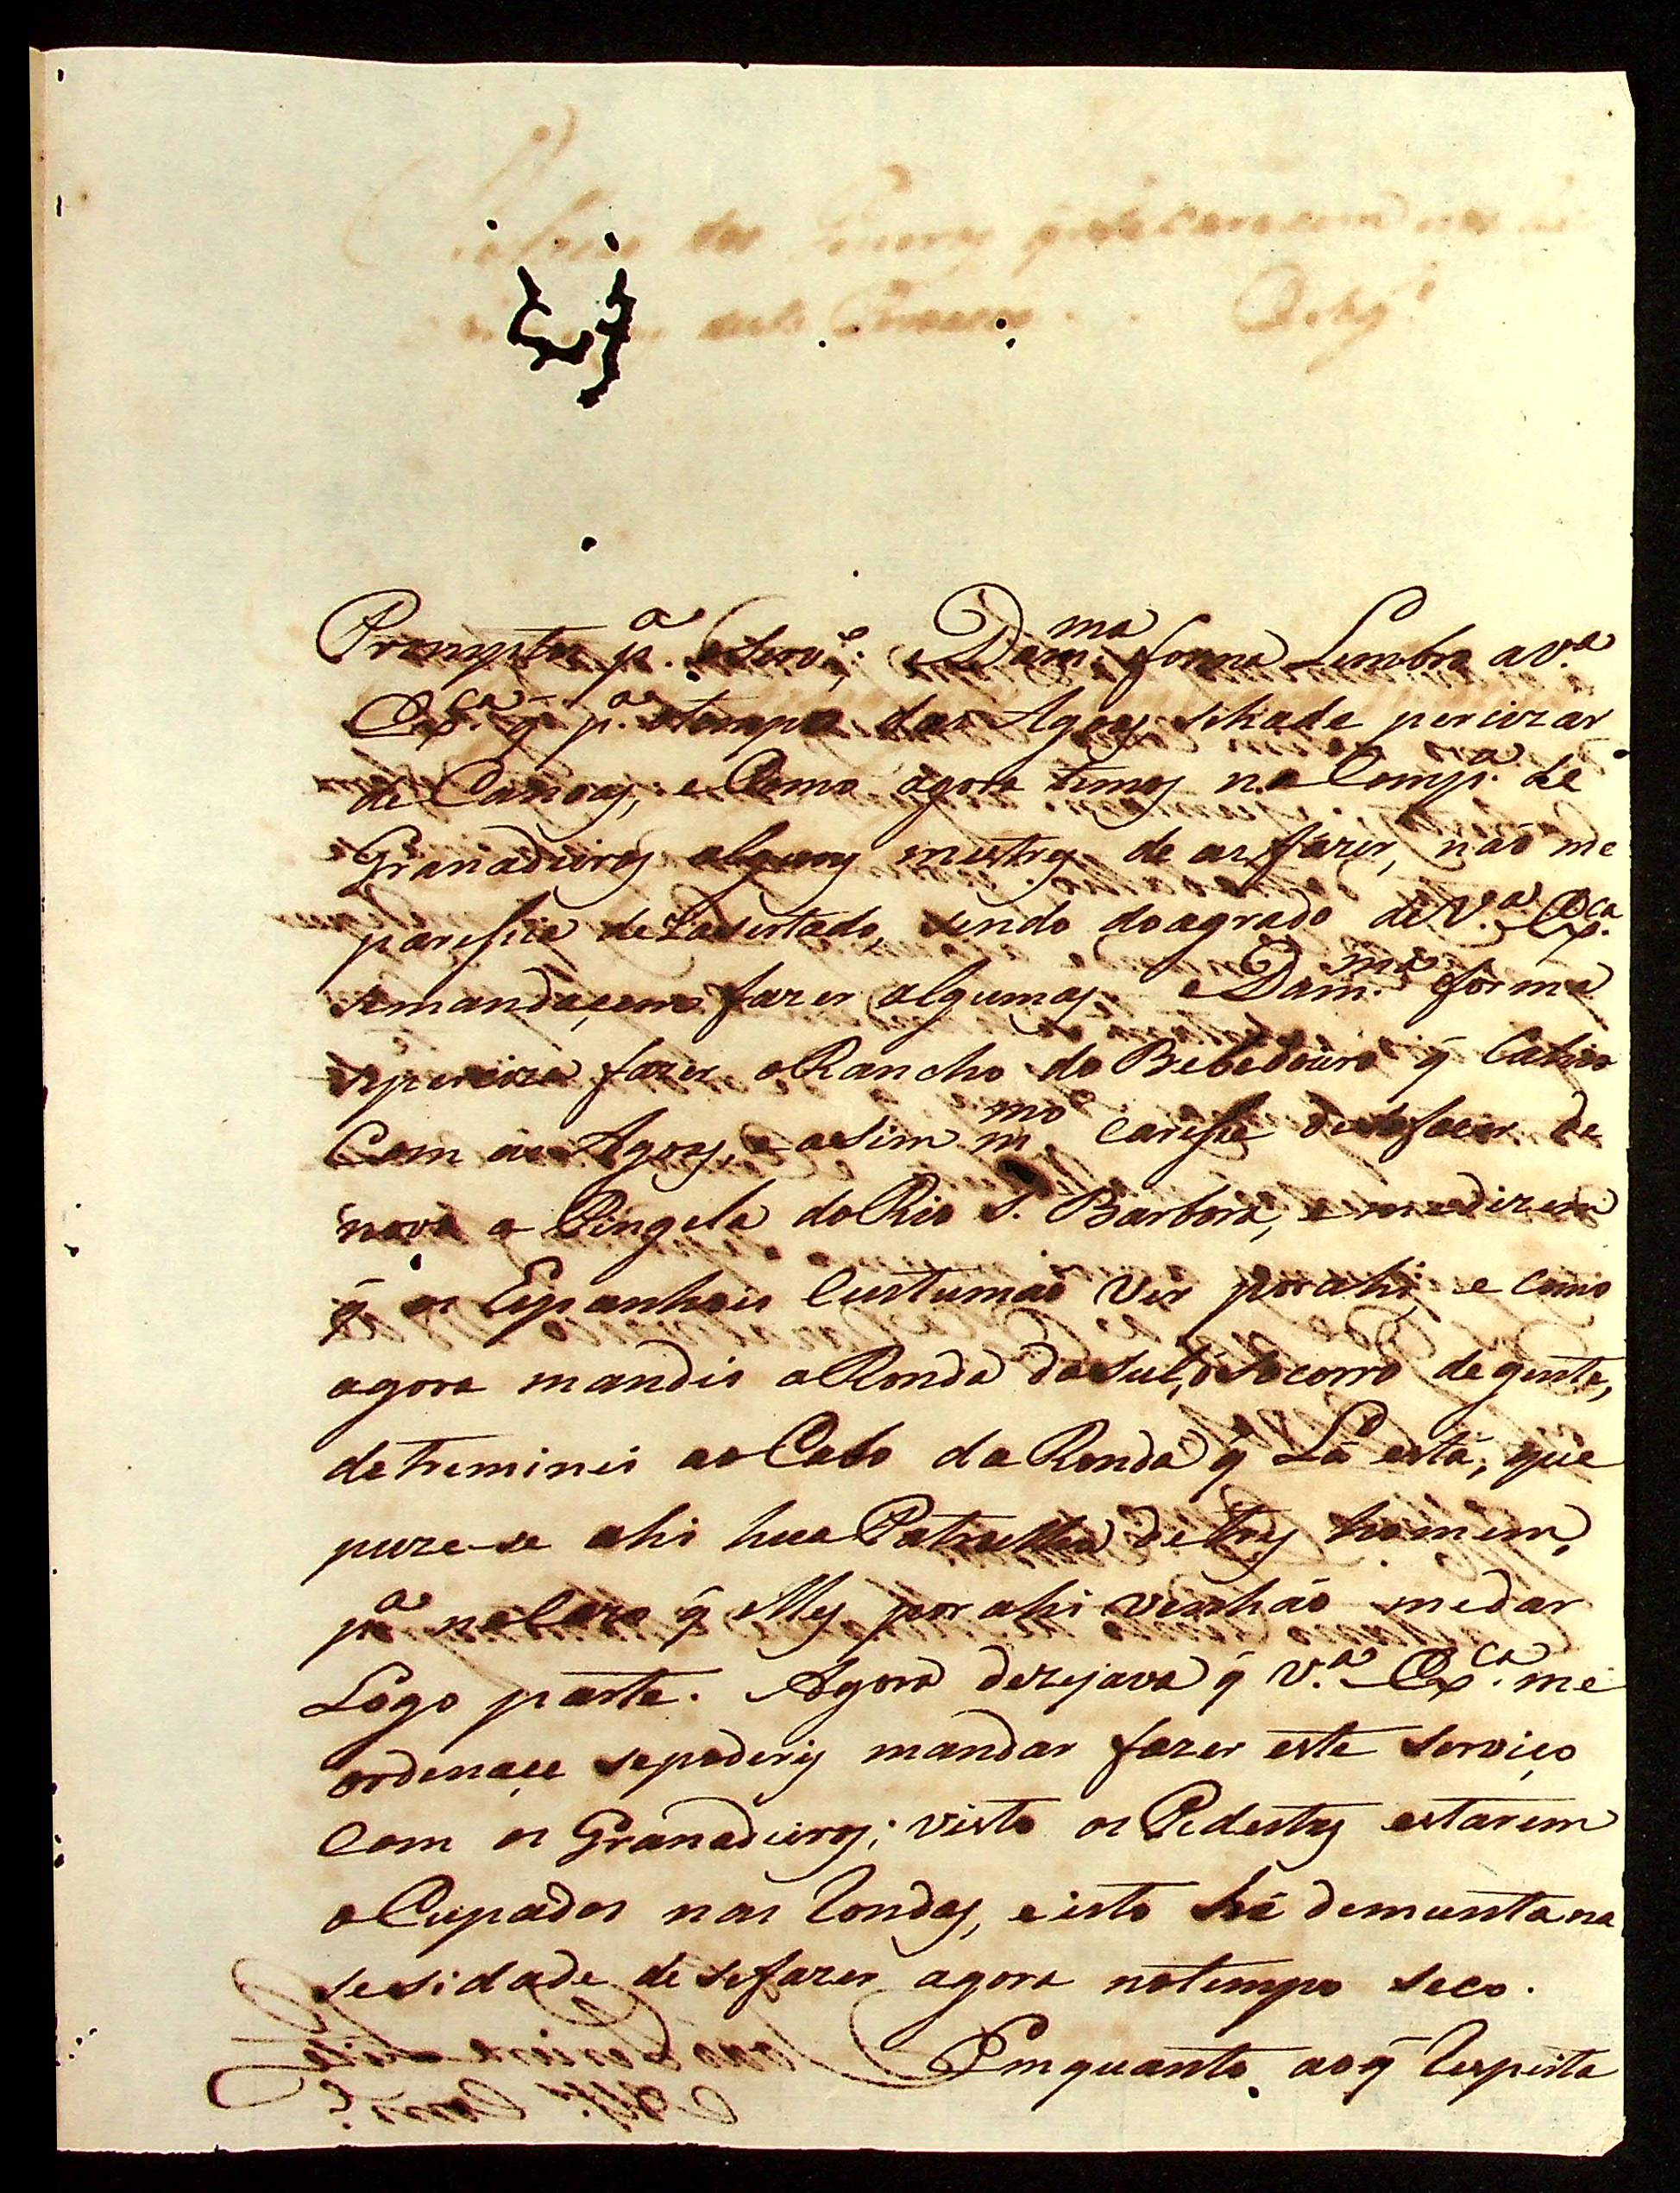 Promptos p.ª o Serv.º; e Dam.ma forma Lembro a V.ª
Ex.ca q̃ p.ª o tempo das Agoas sehade percizar
de Canoas, e Como agora temos na Comp.ª de
Granadeiros alguns mestres de as fazer, não me
paresia dezasertado, sendo do agrado de V.ª Ex.ca
semandaçem fazer algumas, e Dam.ma forma
sepreciza fazer o Rancho do Bebedouro q̃ Cahio
Com as Agoas, e asim m.mo caresse desefazer de
novo a Pingela do Rio S. Barbora, e medizem
q̃ os Espanhois Custumão Vir por ahi, e como
agora mandei a Ronda do Sul, o socorro de gente,
detreminei ao Cabo da Ronda q̃ Lá está, que
puze-se ahi hua Patrulha de tres homens,
p.ª no Cazo q̃ elles por ahi venhão medar
Logo parte. Agora dezejava q̃ V.ª Ex.ca me
ordenaçe sepoderey mandar fazer este serviço
Com os Granadeiros; visto os Pedestres estarem
oCupados nas Rondas, e isto hé demuntana
sesidade desefazer agora notempo seco.
Emquanto aoq̃ Respeita